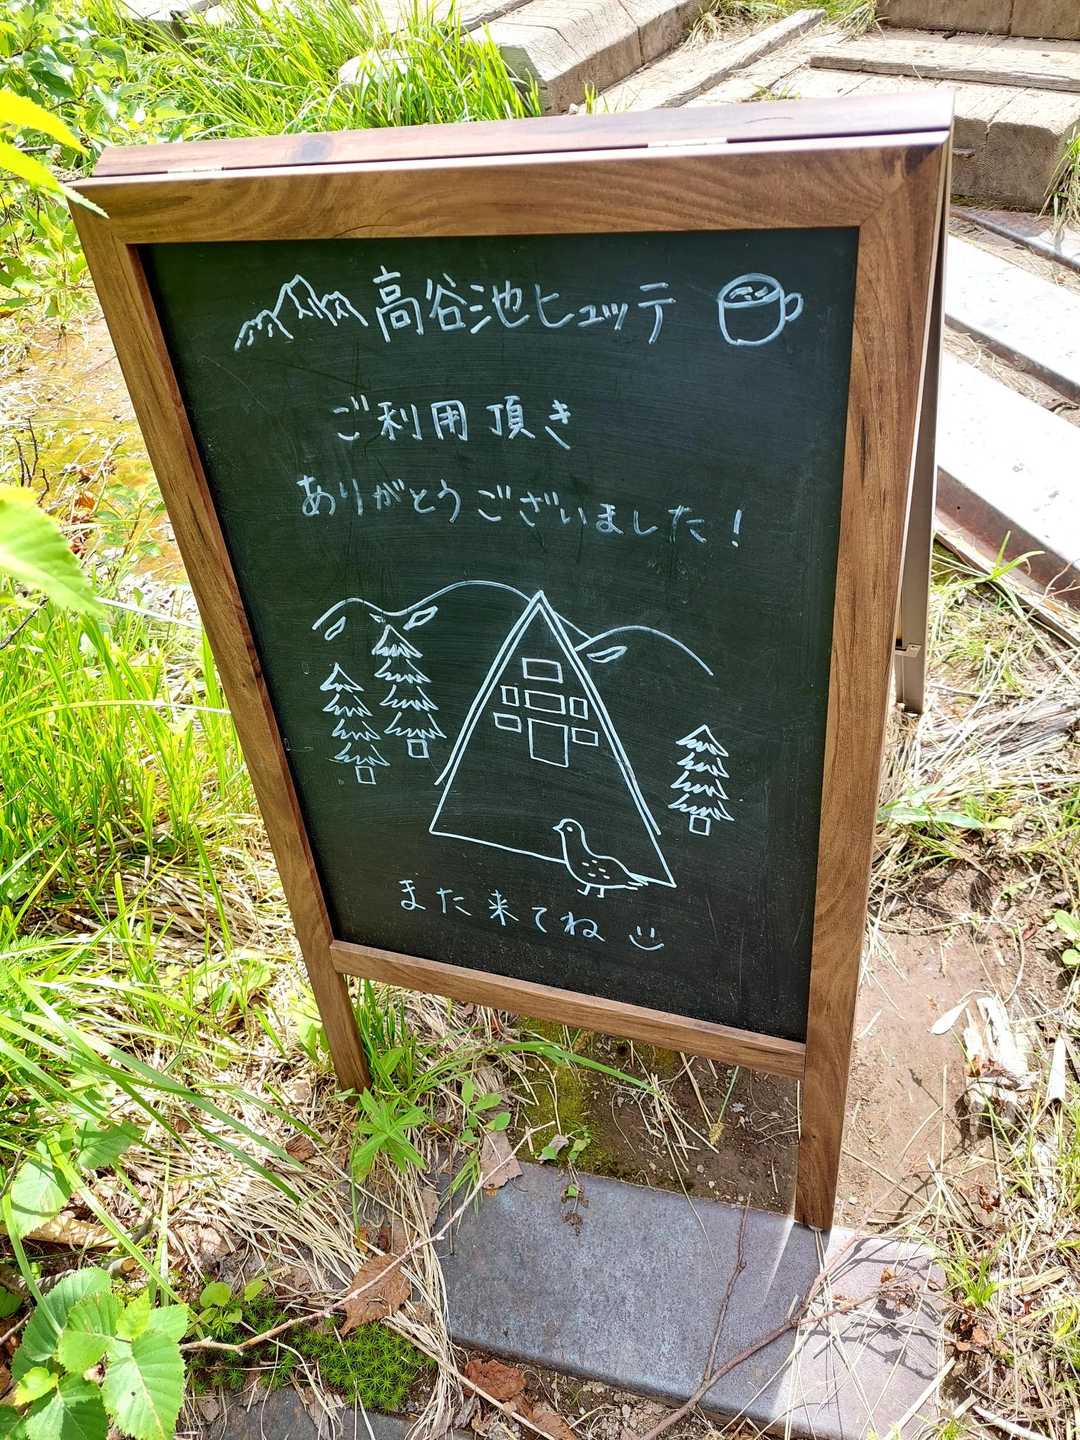 高谷池ヒュッテ
ご利用頂き
ありがとうございました！
また来てね